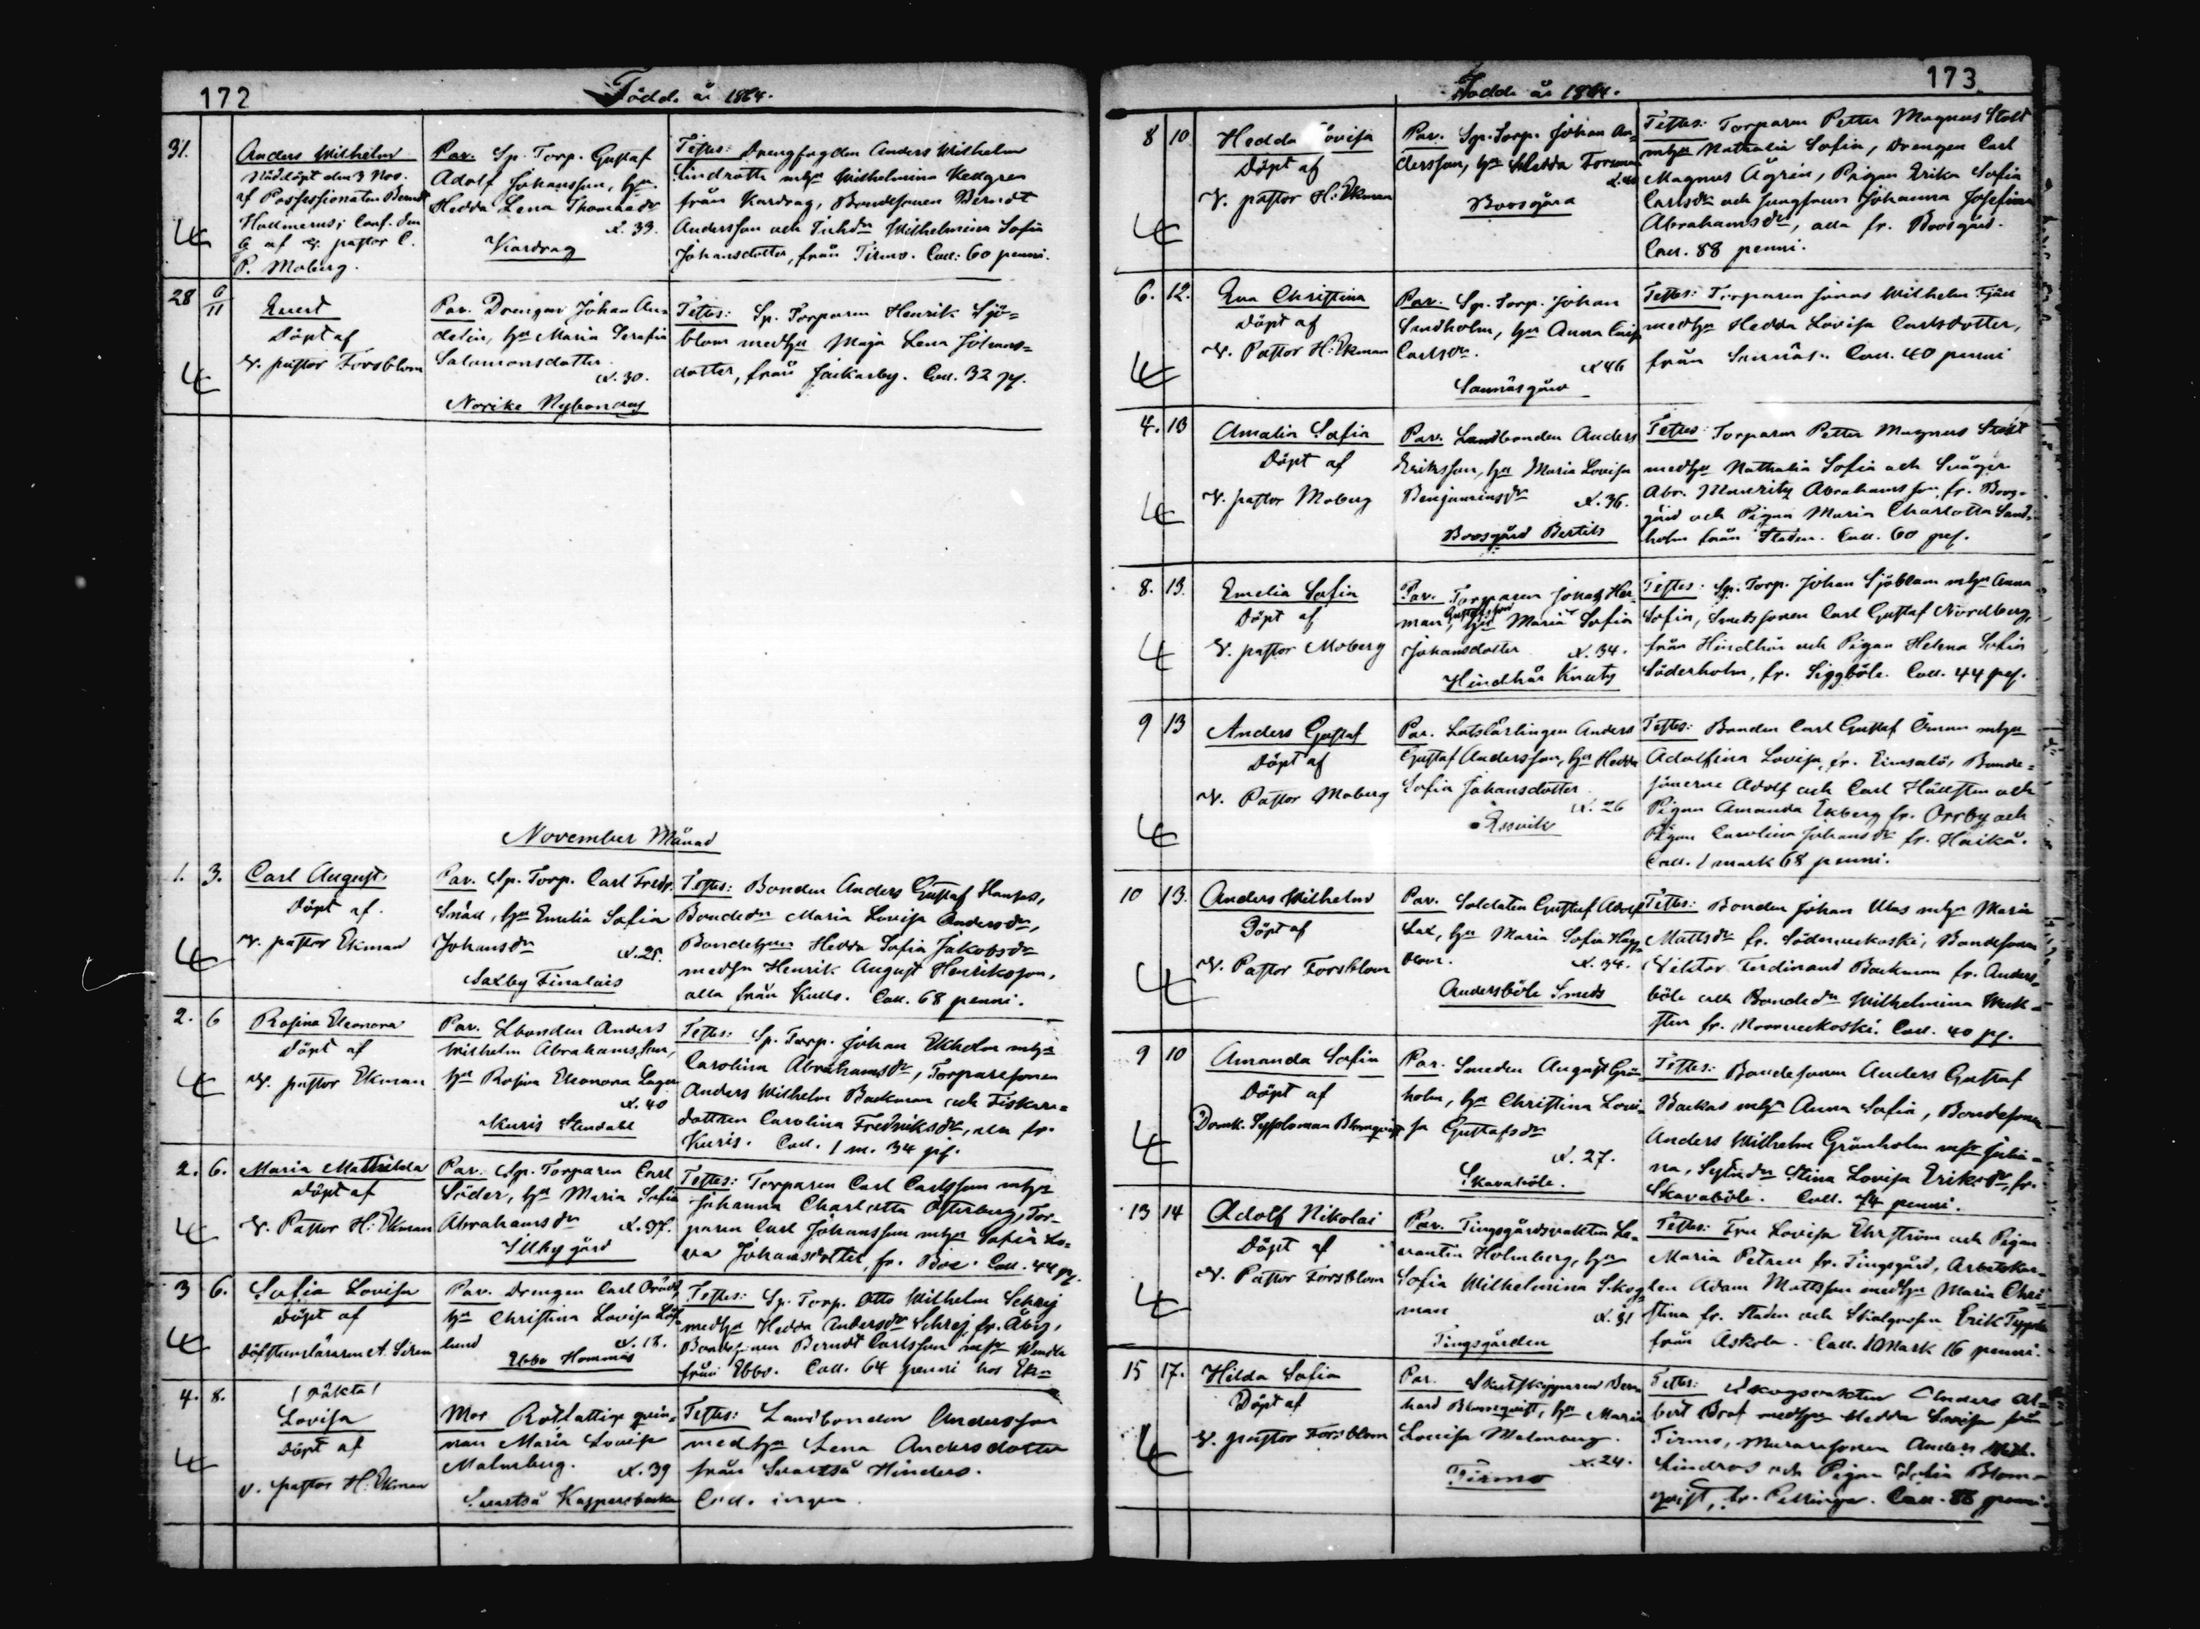 172
Födde år 1864.
31.
Anders Wilhelm
Nöddöpt den 3 Nov.
af Possessionaten Berndt
Conf. den
6 af v. pastor C.
P. Moberg.
Par. Sp. Torp. Gustaf
Adolf Johansson, hu
Hedda Lena Thomasdr
x. 33.
Kardrag
Testes: Drengfogden Anders Wilhelm
Lindroth mhu Wilhelmina
från Kardrag, Bondesonen Berndt
Andersson och Wilhelmina Sofia
Johansdotter, från Tirmo. Coll: 60 penni.
28 6/11
Evert
Döpt af
v. pastor Forsblom
Par. Drengen Johan An-
delin, hu Maria Serafia
Salomonsdotter
x. 30.
Norike Nybondas
Testes: Sp. Torparen Henrik Sjö-
blom medhu Maja Lena Johans-
dotter, från Jackarby. Coll. 32 pi.
November Månad
1. 3.
Carl August.
Döpt af
v. pastor Ekman
Par. Sp. Torp. Carl Fredr.
Snäll, hu Emelia Sofia
Johansdr
x. 25.
Saxby Finalais
Testes: Bonden Anders Gustaf
Bondedr Maria Lovisa Andersdr,
Bondehun Hedda Sofia Jakobsdr
medsn Henrik August Henriksson,
alla från Kulls. Coll. 68 penni.
2. 6
Rosina Eleonora
Döpt af
v. pastor Ekman
Par. Lbonden Anders
Wilhelm Abrahamsson,
hu Rosina Eleonora
x. 40
Kuris Stendahl
Testes: Sp. Torp. Johan Ekholm mhu
Carolina Abrahamsdr, Torparesonen
Anders Wilhelm Backman och Fiskare-
dottren Carolina Fredriksdr, alla fr.
Kuris. Coll. 1 m. 34 pi.
2. 6.
Maria Mathilda
Döpt af
v. Pastor H: Ekman
Par. Sp. Torparen Carl
Söder, hu Maria Sofia
Abrahamsdr x. 37.
Silby gård
Testes: Torparen Carl Carlsson mhu
Johanna Charlotta Österberg, Tor-
paren Carl Johansson mhu Sofia Lo-
visa Johansdotter, fr. Boe. Coll. 44 pi.
3 6.
Sofia Lovisa
Döpt af
döfstumläraren
Par. Drengen Carl
hu Christina Lovisa Löf-
lund
x. 18.
Ebbo Hommas
Testes: Sp. Torp. Otto Wilhelm Schrej
medhu Hedda Andersdr Schrej, fr. Åby,
Bondesonen Berndt Carlsson
från Ebbo. Coll. 64 penni hos Ek-
4. 8.
(oäkta)
Lovisa
Döpt af
v. pastor H: Ekman
Mor Rotfattige qvin-
nan Maria Lovisa
Malmberg.
x. 39
Svartså
Testes: Landbonden Andersson
medhu Lena Andersdotter
från Svartså Hinders.
Coll. ingen.
173
Födde år 1864.
8 10
Hedda Lovisa
Döpt af
v. pastor H: Ekman
Par. Sp. Torp. Johan An-
dersson, hu Hedda Forsman
x. 40
Boosgård
Testes: Torparen Petter Magnus Stolt
mhu Nathalia Sofia, Drengen Carl
Magnus Ågren, Pigan Erika Sofia
Carlsdr och Jungfrun Johanna Josefina
Abrahamsdr, alla fr. Boosgård.
Coll. 88 penni.
6. 12.
Eva Christina
Döpt af
v. Pastor H: Ekman
Par. Sp. Torp. Johan
Sandholm, hu Anna Caisa
Carlsdr.
x 46
Sannäsgård
Testes: Torparen Jonas Wilhelm
medhu Hedda Lovisa Carlsdotter,
från Sannäs. Coll. 40 penni
4. 13
Amalia Sofia
Döpt af
v. pastor Moberg
Par. Landbonden Anders
Eriksson, hu Maria Lovisa
Benjaminsdr
x. 36.
Boosgård Bertils
Testes: Torparen Petter Magnus Stolt
medhu Nathalia Sofia och Svåger
Abr. Mauritz Abrahamsson fr. Boos-
gård och Pigan Maria Charlotta Sand-
holm från Staden. Coll. 60 pi.
8. 13.
Emelia Sofia
Döpt af
v. pastor Moberg
Par. Torparen Jonas Her-
man Gustafsson, hu Maria Sofia
Johansdotter x. 34.
Hindhår Knuts
Testes: Sp. Torp. Johan Sjöblom mhu Anna
Sofia, Smedssonen Carl Gustaf Nordberg,
från Hindhår och Pigan Helena Sofia
Söderholm, fr. Siggböle. Coll. 44 pi.
9 13
Anders Gustaf
Döpt af
v. Pastor Moberg
Par. Lotslärlingen Anders
Gustaf Andersson, hu Hedda
Sofia Johansdotter
x. 26
Testes: Bonden Carl Gustaf Öman mhu
Adolfina Lovisa fr. Emsalö, Bonde-
sönerne Adolf och Carl Hällsten och
Pigan Amanda Ekberg fr. Orrby och
Pigan Carolina Johansdr fr. Haikå.
Coll. 1 mark 68 penni.
10 13.
Anders Wilhelm
Döpt af
v. Pastor Forsblom
Par. Soldaten Gustaf Adolf
Lax, hu Maria Sofia
blom.
x. 34.
Andersböle Smeds
Testes: Bonden Johan mhu Maria
Mattsdr fr. Söderveckoski, Bondesonen
Viktor Ferdinand Backman fr. Anders-
böle och Bondedr Wilhelmina
sten fr. Norrveckoski. Coll. 40 pi.
9 10
Amanda Sofia
Döpt af
Domk. Syssloman Blomqvist
Par. Smeden August Grön-
holm, hu Christina Lovi-
sa Gustafsdr
x. 27.
Skavaböle.
Testes: Bondesonen Anders Gustaf
Backas mhu Anna Sofia, Bondesonen
Anders Wilhelm Grönholm Julia-
na, Stina Lovisa Eriksdr, fr.
Skavaböle. Coll. 74 penni.
13 14
Adolf Nikolai
Döpt af
v. Pastor Forsblom
Par. Tingsgårdsvakten
Holmberg, hu
Sofia Wilhelmina Skog-
man
x. 31
Tingsgården
Testes: Fru Lovisa Ehrström och Pigan
Maria Petren fr. Tingsgård, Arbetskar-
len Adam Mattsson medhu Maria Chri-
stina fr. Staden och Erik
från Askola. Coll. 1 Mark 16 penni.
15 17.
Hilda Sofia
Döpt af
v. pastor Forsblom
Par. Skutskepparen Bern-
hard Blomqvist, hu Maria
Lovisa Malmberg.
x. 24.
Tirmo
Testes: Skogsvakten Anders Al-
bert medhu Hedda Lovisa från
Tirmo, Anders Wilh.
Lindros och Pigan Sofia Blom-
qvist, fr. Pellinge. Coll. 88 penni.